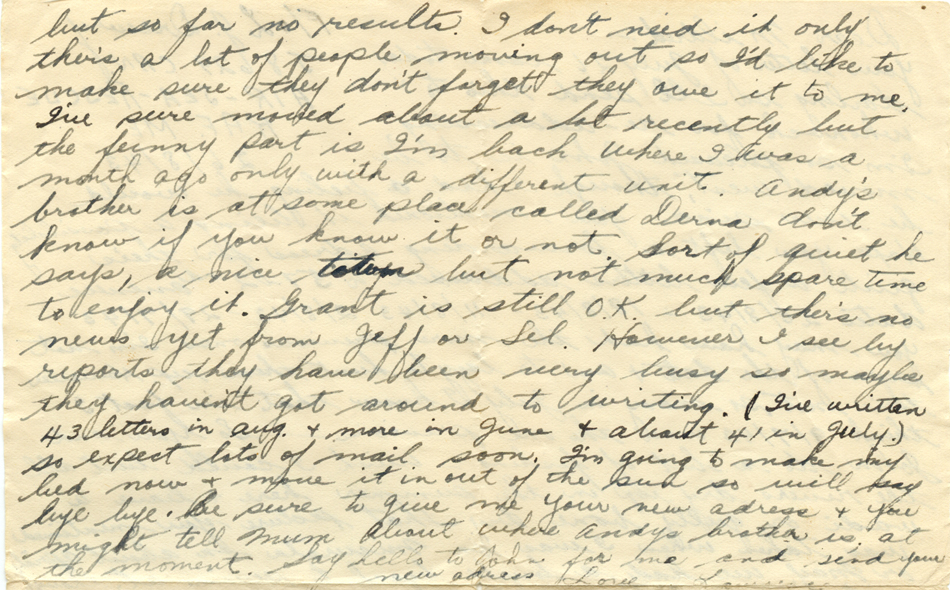 but so far no results. I don't need it only
ther's a lot of people moving out so I'd like to
make sure they don't forget they owe it to me.
I've sure moved about a lot recently but
the funny part is I'm back where I was a
month ago only with a different unit. Andy's
brother is at some place called Derna don't
know if you know it or not. Sort of quiet he
says, a nice but not much spare time
to enjoy it. Grant is still O.K. but ther's no
news yet from Jeff or Sel. However I see by
reports they have been very busy so maybe
they haven't got around to writing. (I've written
43 letters in aug. + more in June + about 41 in July.)
so expect lots of mail soon. I'm going to make my
bed now + move it in out of the sun so will say
bye bye. Be sure to give me your new adress + you
might tell Mum about where Andys brother is at
the moment. Say hello to John for me and send your
new adress Love